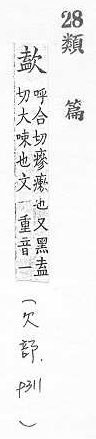 28
類篇
呼合切瘮瘷也又黑盍
切大也文一重音一
(欠部. p311)